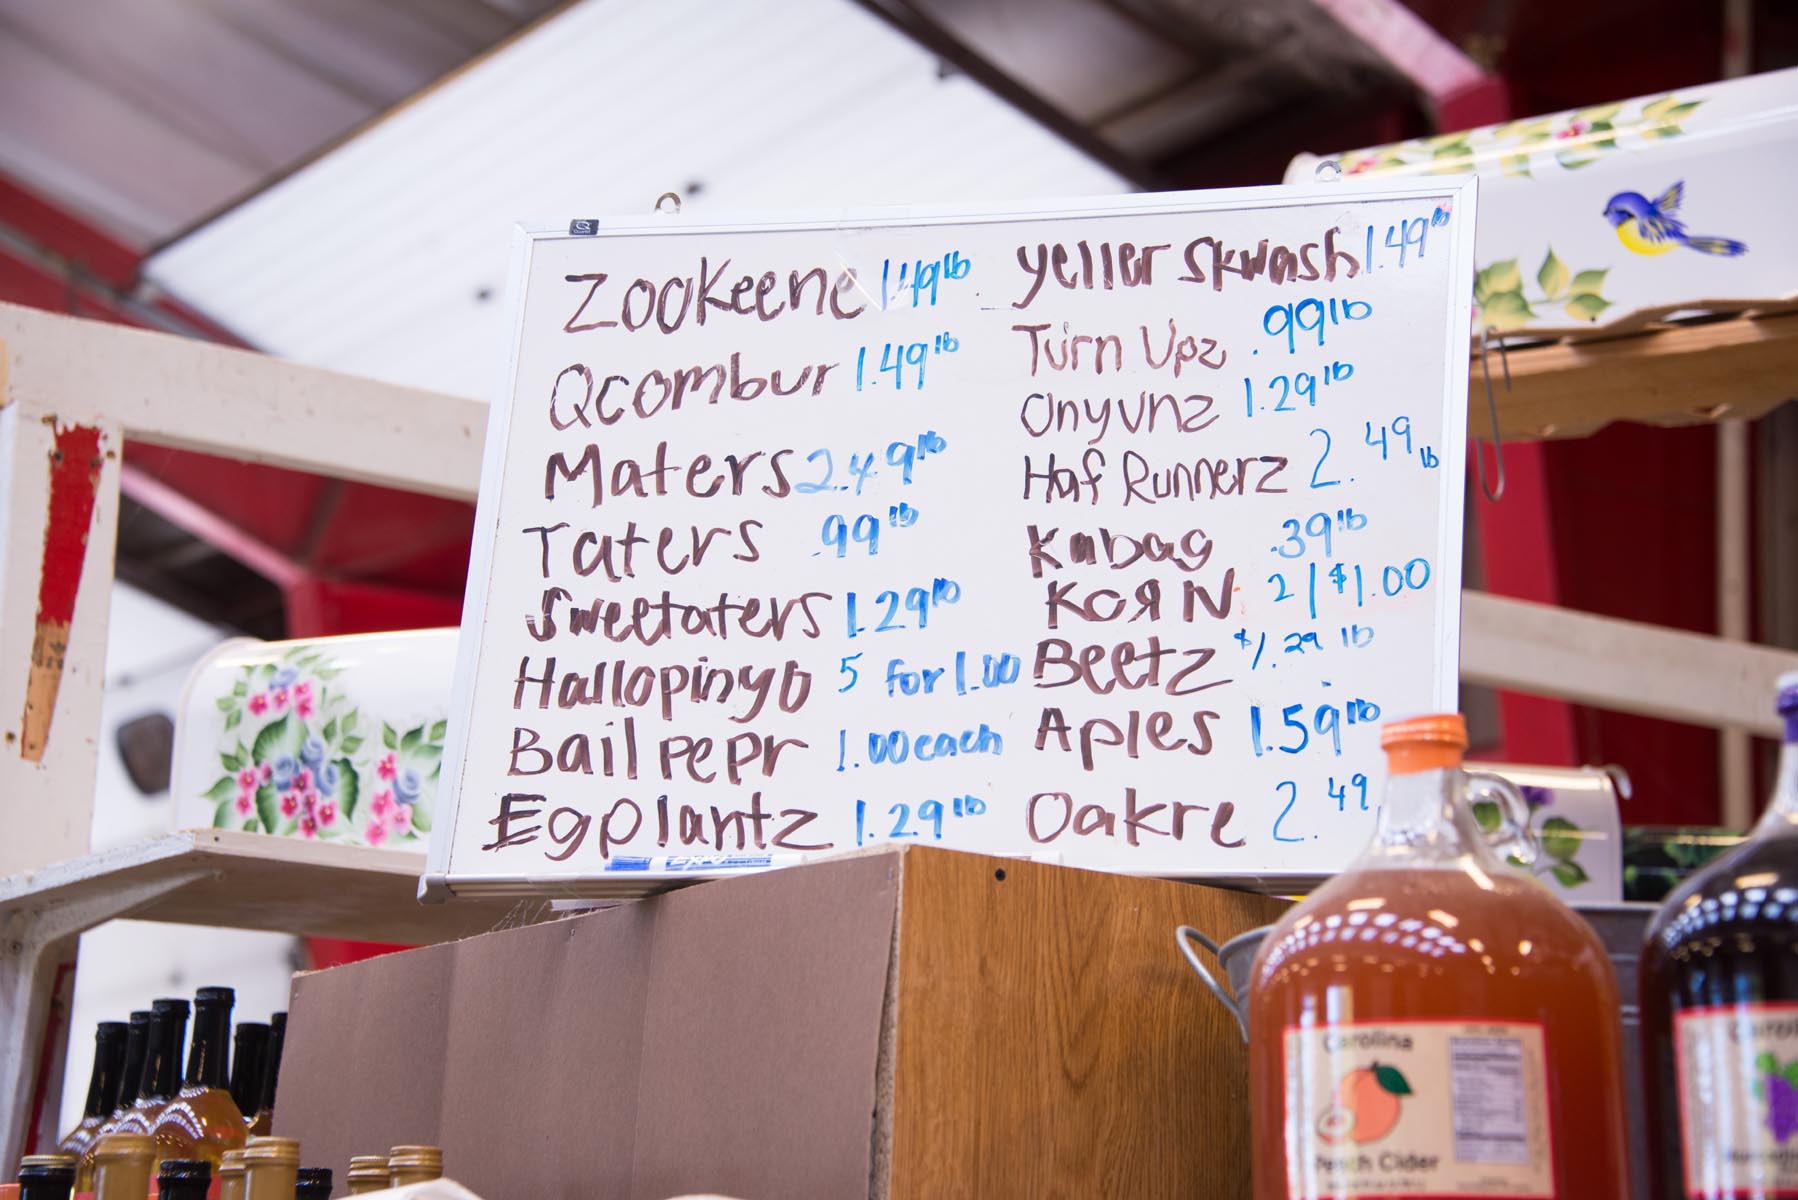 Zookeene 1.49 lb
Qcombur 1.49 lb
Maters 2.49 lb
Taters .99 lb
Sweetaters 1.29 lb
Hallopinyo 5 for 1.00
Bail pepr 1.00 each
Egplantz 1.29 lb
yeller Skwash 1.49 lb
Turn Upz .99 lb
Onyunz 1.29 lb
Haf Runnerz 2.49 lb
Kabag .39 lb
KoЯN 2/$1.00
Beetz $1.29 lb
Aples 1.59 lb
Oakre 2.49
EXPO
Carolina
Peach Cider